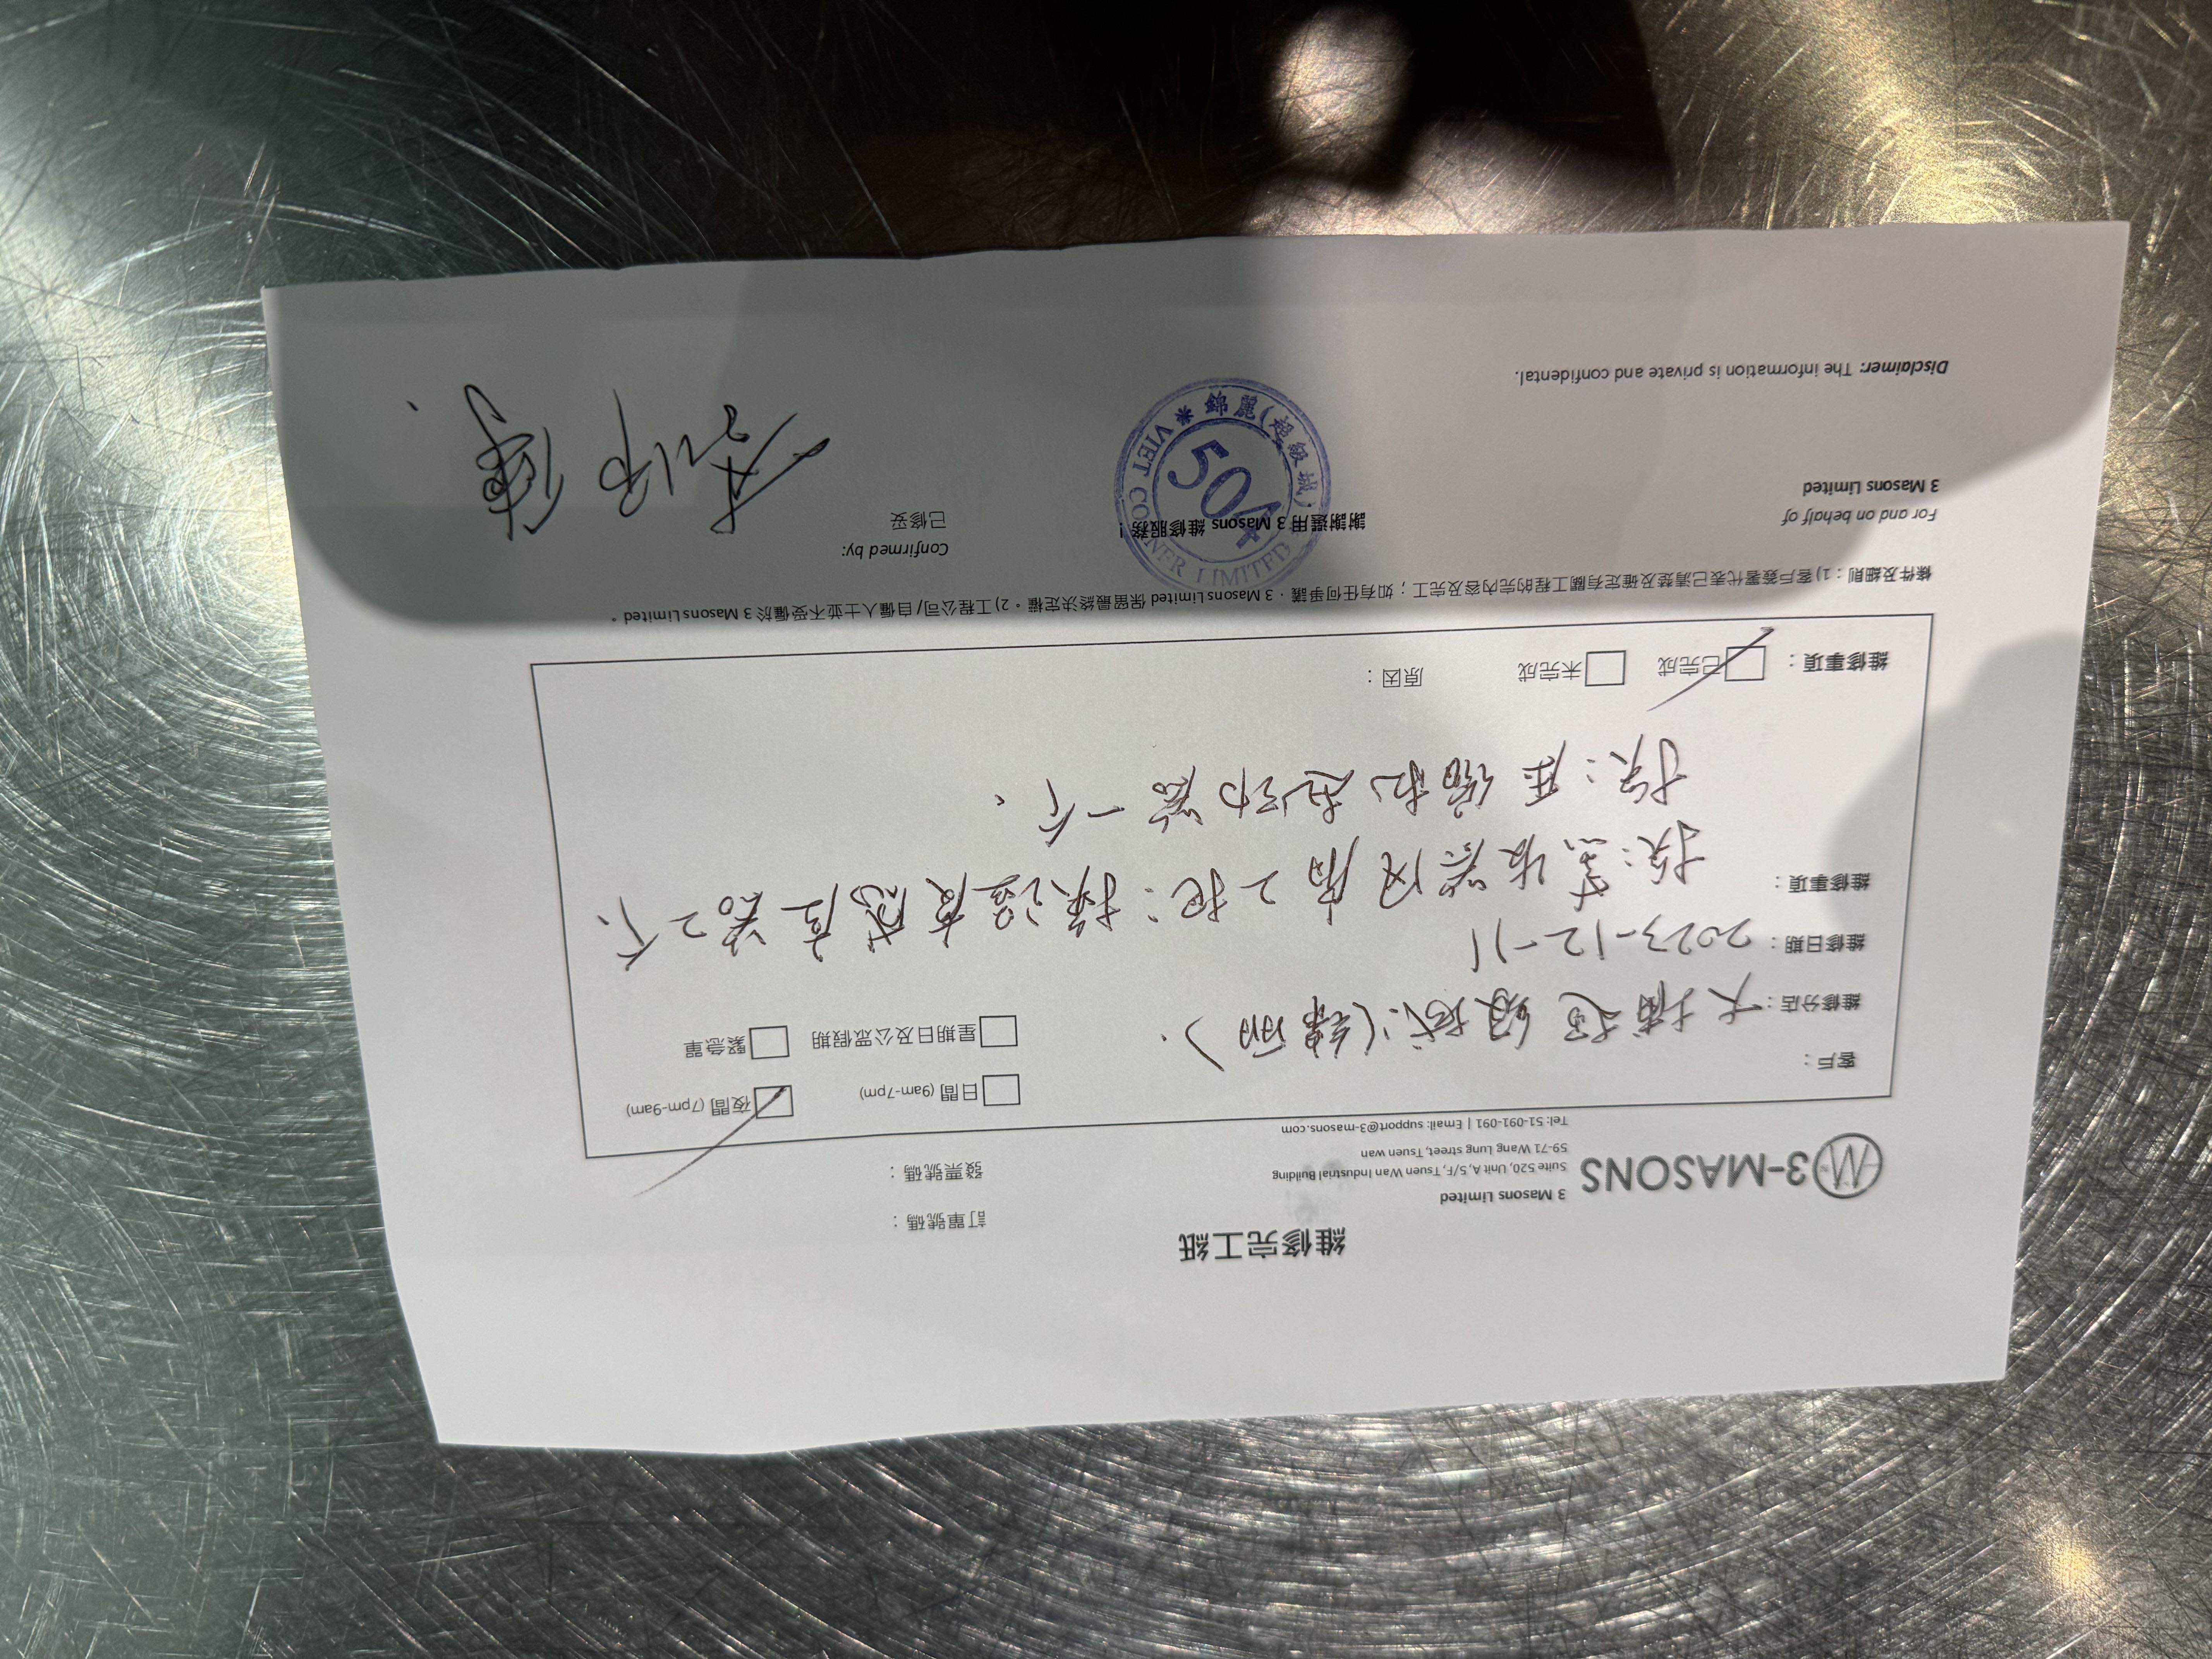 維修完工紙
訂單號碼：
發票號碼：
3-MASONS
3 Masons Limited
Suite 520, Unit A, 5/F, Tsuen Wan Industrial Building
59-71 Wang Lung street, Tsuen wan
Tel: 51-091-091 | Email: support@3-masons.com
客戶：
日間 (9am-7pm)
夜間 (7pm-9am)
維修分店：大埔超級城（錦丽）.
星期日及公眾假期
緊急單
維修日期：2023-12-11
維修事項：
换：蒸发器风扇2把；换温度感应器2个、
换：压缩机起动器一个、
維修事項：
已完成
未完成
原因：
條件及細則：1) 客戶簽署代表已清楚及確定有關工程的完內容及完工；如有任何爭議，3 Masons Limited 保留最終決定權。2) 工程公司/自僱人士並不受僱於 3 Masons Limited。
For and on behalf of
3 Masons Limited
謝謝選用 3 Masons 維修服務！
Confirmed by:
已修妥
錦麗(超級城)
504
VIET CORNER LIMITED
Disclaimer: The information is private and confidental.